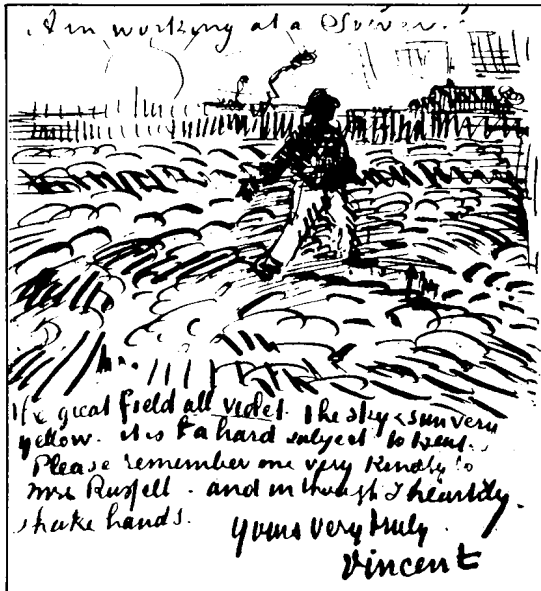 Am working at a Sower.
the great field all violet. the sky & sun very
yellow. it is a hard subject to treat.
Please remember me very kindly to
mrs Russell. and in thought I heartily
shake hands.
yours very truly
Vincent